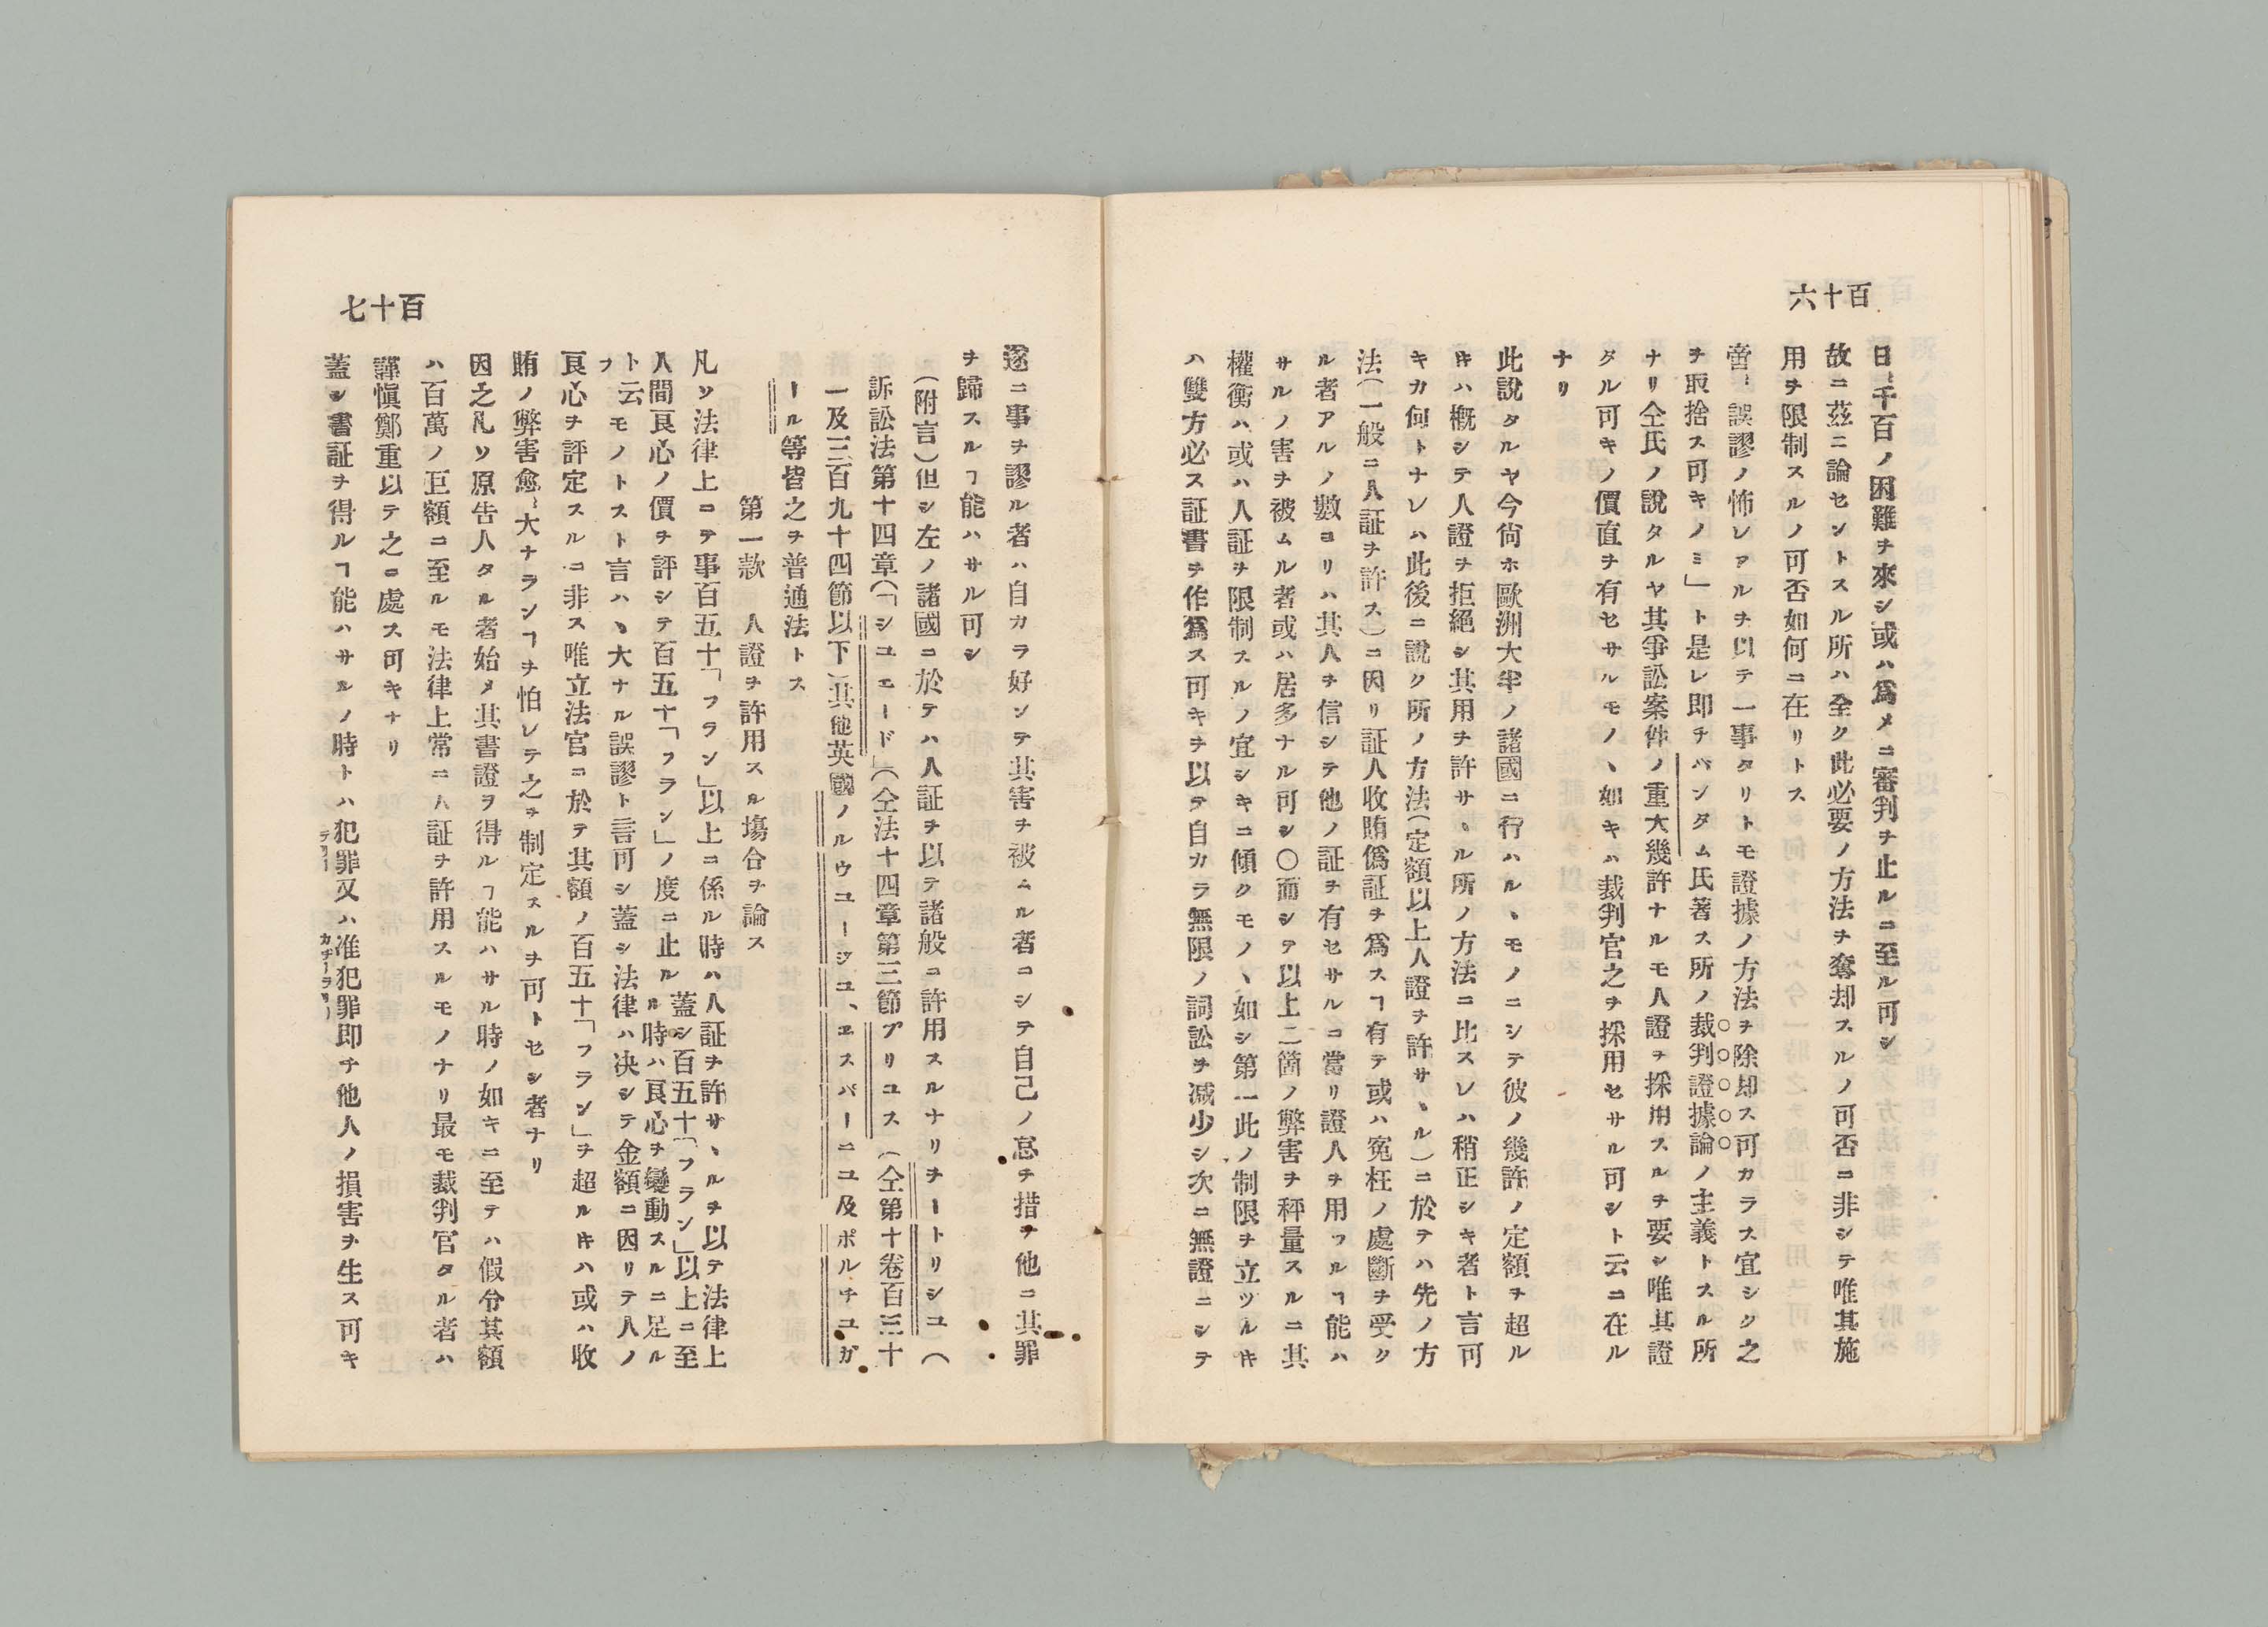 百十六
日ミ千百ノ困難ヲ來シ或ハ爲メニ審判ヲ止ルニ至ル可シ
故ニ茲ニ論セントスル所ハ全ク此必要ノ方法ヲ奪却スルノ可否ニ非シテ唯其施
用ヲ限制スルノ可否如何ニ在リトス
啻ミ誤謬ノ怖レアルヲ以テ一事タリトモ證據ノ方法ヲ除却ス可カラス宜シク之
ヲ取捨ス可キノミ」ト是レ即チバンタム氏著ス所ノ裁判證據論ノ主義トスル所
ナリ仝氏ノ說タルヤ其爭訟案件ノ重大幾許ナルモ人證ヲ採用スルヲ要シ唯其證
タル可キノ價直ヲ有セサルモノヽ如キハ裁判官之ヲ採用セサル可シト云ニ在ル
ナリ
此說タルヤ今尙ホ歐洲大半ノ諸國ニ行ハルヽモノニシテ彼ノ幾許ノ定額ヲ超ル
キハ槪シテ人證ヲ拒絕シ其用ヲ許サヽル所ノ方法ニ比スレハ稍正シキ者ト言可
キカ何トナレハ此後ニ說ク所ノ方法(定額以上人證ヲ許サヽル)ニ於テハ先ノ方
法(一般ニ人証ヲ許ス)ニ因リ証人收賄僞証ヲ爲スヿ有テ或ハ寃枉ノ處斷ヲ受ク
ル者アルノ數ヨリハ其人ヲ信シテ他ノ証ヲ有セサルニ當リ證人ヲ用フルヿ能ハ
サルノ害ヲ被ムル者或ハ居多ナル可シ〇而シテ以上二箇ノ弊害ヲ秤量スルニ其
權衡ハ或ハ人証ヲ限制スルノ宜シキニ傾クモノヽ如シ第一此ノ制限ヲ立ツルキ
ハ雙方必ス証書ヲ作爲ス可キヲ以テ自カラ無限ノ詞訟ヲ減少シ次ニ無證ニシテ
百十七
遂ニ事ヲ謬ル者ハ自カラ好ンテ其害ヲ被ムル者ニシテ自己ノ怠ヲ措テ他ニ其罪
ヲ歸スルヿ能ハサル可シ
(附言)但シ左ノ諸國ニ於テハ人証ヲ以テ諸般ニ許用スルナリヲートリシユ(
訴訟法第十四章(「シユエード」(仝法十四章第三節プリユス(仝第十卷百三十
一及三百九十四節以下)其他英國ノルウユージユ、エスパーニユ及ポルチユガ
ール等皆之ヲ普通法トス
第一款 人證ヲ許用スル塲合ヲ論ス
凡ソ法律上ニテ事百五十「フラン」以上ニ係ル時ハ人証ヲ許サヽルヲ以テ法律上
人間良心ノ價ヲ評シテ百五十「フラン」ノ度ニ止ル蓋シ百五十「フラン」以上ニ至ル時ハ良心ヲ變動スルニ足ル
ト云フモノトスト言ハヽ大ナル誤謬ト言可シ蓋シ法律ハ决シテ金額ニ因リテ人ノ
良心ヲ評定スルニ非ス唯立法官ニ於テ其額ノ百五十「フラン」ヲ超ルキハ或ハ收
賄ノ弊害愈ミ大ナランヿヲ怕レテ之ヲ制定スルヲ可トセシ者ナリ
因之凡ソ原告人タル者始メ其書證ヲ得ルヿ能ハサル時ノ如キニ至テハ假令其額
ハ百萬ノ巨額ニ至ルモ法律上常ニ人証ヲ許用スルモノナリ最モ裁判官タル者ハ
謹愼鄭重以テ之ニ處ス可キナリ
蓋シ書証ヲ得ルヿ能ハサルノ時トハ犯罪又ハ准犯罪即チ他人ノ損害ヲ生ス可キ